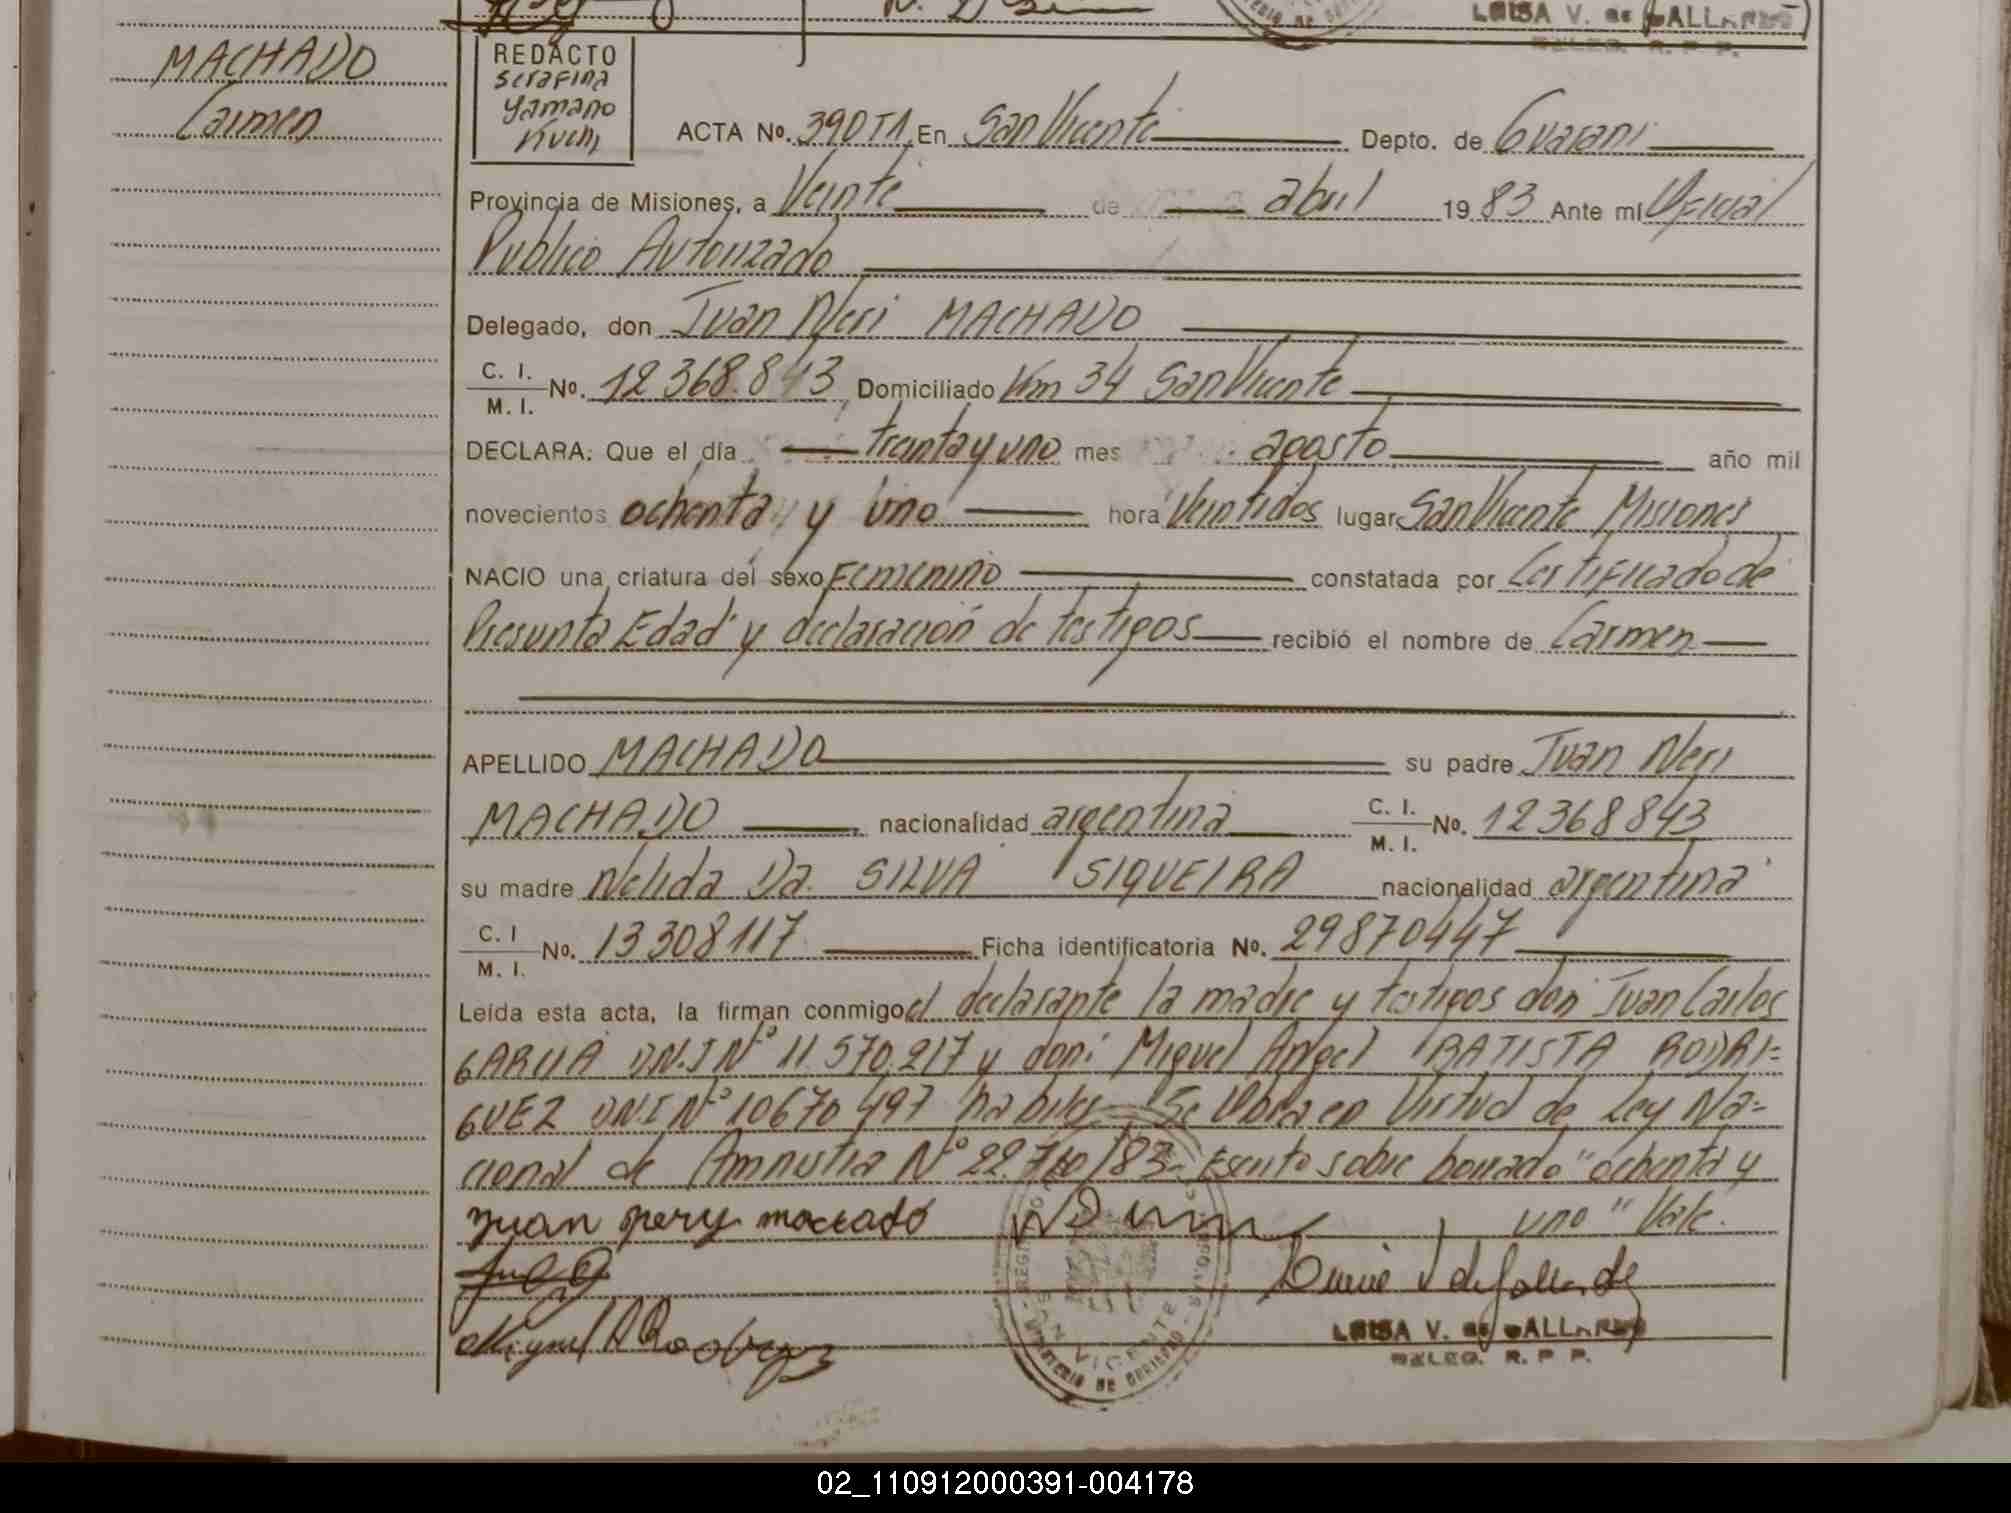 LUISA V. de GALLARDO
DELEG. R. P. P.
MACHADO
Carmen
REDACTO
Serafina
Yamano
ACTA No. 390 T1 En San Vicente Depto. de Guarani
Provincia de Misiones, a Veinte de abril 1983 Ante mí Oficial
Publico Autorizado
Delegado, don Juan Neri MACHADO
C. I.
M. I. No. 12368.843, Domiciliado Km 34 San Vicente
DECLARA: Que el día treinta y uno mes agosto año mil
novecientos ochenta y uno hora Veintidos lugar San Vicente Misiones
NACIO una criatura del sexo Femenino constatada por Certificado de
Presunta Edad y declaración de testigos recibió el nombre de Carmen
APELLIDO MACHADO su padre Juan Neri
MACHADO, nacionalidad argentina C. I. M. I. No. 12368843
su madre Nelida Da. SILVA SIQUEIRA nacionalidad argentina
C. I M. I. No. 13308117 Ficha identificatoria No. 29870447
Leída esta acta, la firman conmigo el declarante la madre y testigos don Juan Carlos
GARCIA D.N.I Nº 11.570.217 y don Miguel Angel BATISTA RODRI=
GUEZ D.N.I Nº 10670497 habiles. Se labra en Virtud de Ley Na=
cional de Amnistia Nº 22.710/83- Escrito sobre borrado "ochenta y
uno" Vale.
Juan nery maccado
Miguel A Rodriguez
SAN VICENTE
MINISTERIO DE GOBIERNO
LUISA V. de GALLARDO
DELEG. R. P. P.
02_110912000391-004178